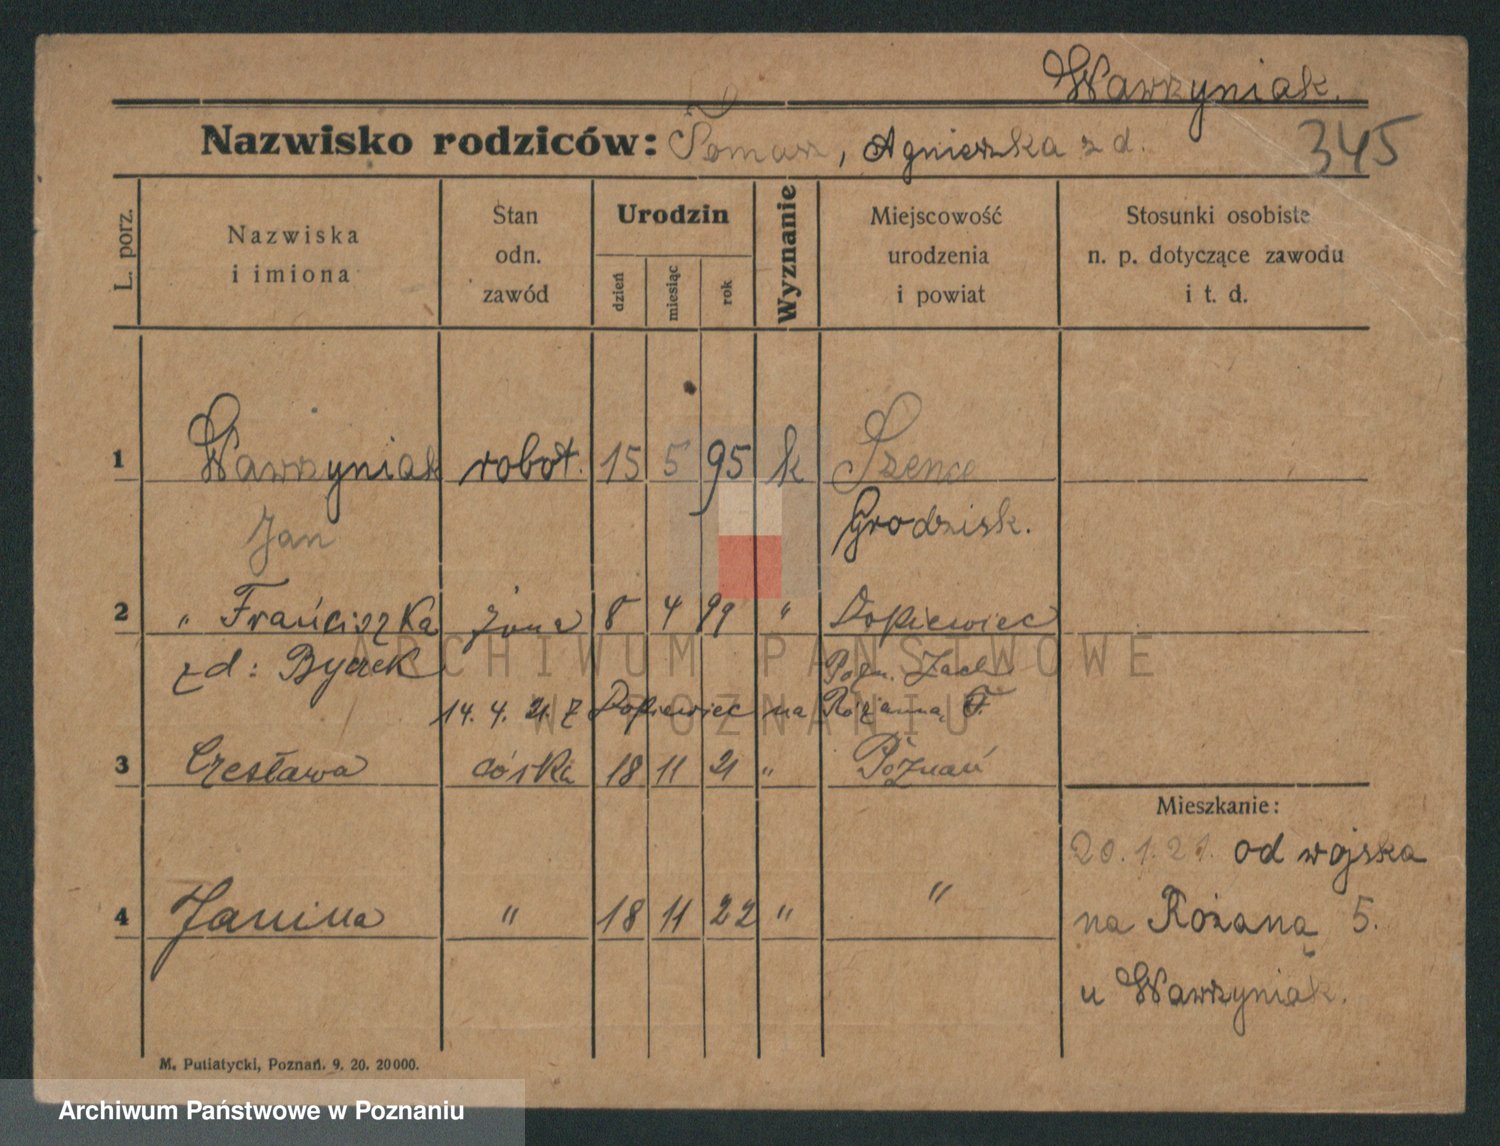 Wawrzyniak.
Nazwisko rodziców: Tomasz, Agnieszka z d.
345
L. porz.
Nazwiska
i imiona
Stan
odn.
zawód
Urodzin
dzień
miesiąc
rok
Wyznanie
Miejscowość
urodzenia
i powiat
Stosunki osobiste
n. p. dotyczące zawodu
i t. d.
1 Wawrzyniak robot. 15 5 95 k
Jan Grodzisk.
2 " Franciszka żona 8 4 99 " Dopiewiec
z d: Pozn. Zach
14. 4. 21. z Dopiewiec na Różanną 5.
3 Czesława córka 18 11 21 " Poznań
Mieszkanie:
20. 1. 21. od wojska
4 Janina " 18 11 22 " "
na Różaną 5.
u Wawrzyniak.
M. Putiatycki, Poznań. 9. 20. 20000.
ARCHIWUM PAŃSTWOWE
W POZNANIU
Archiwum Państwowe w Poznaniu